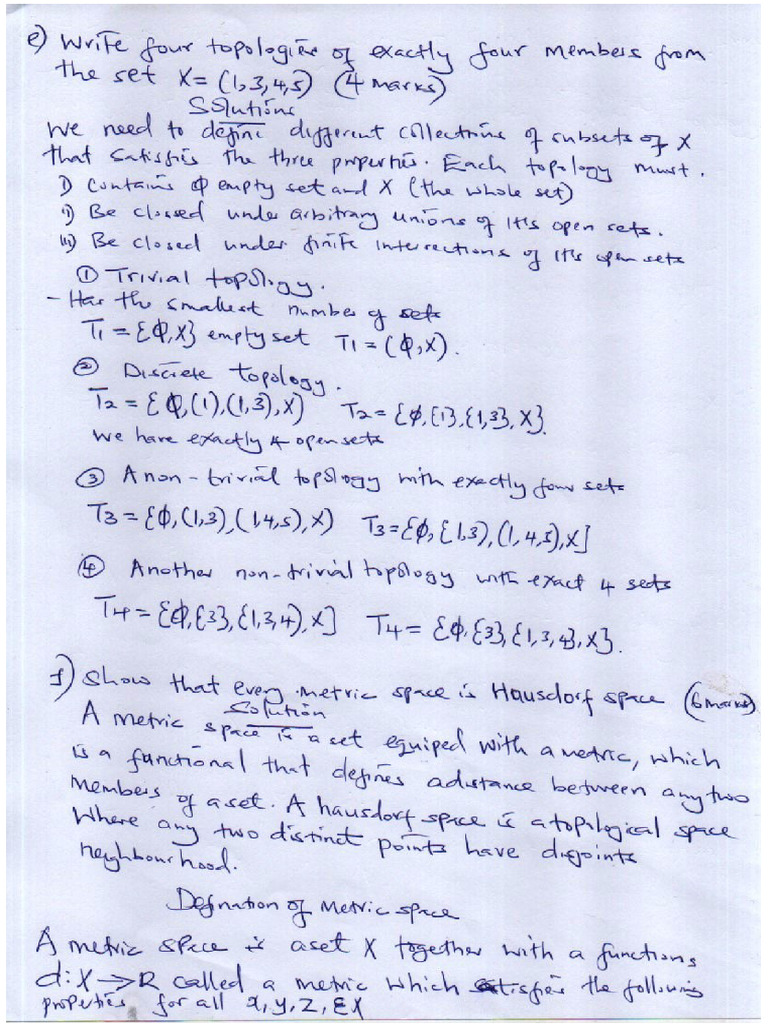 e) Write four topologies of exactly four members from
the set X = (1,3,4,5) (4 marks)
Solutions
We need to define different collections of subsets of X
that satisfies the three properties. Each topology must.
i) Contains Φ empty set and X (the whole set)
ii) Be closed under arbitrary unions of it's open sets.
iii) Be closed under finite interrections of it's open sets
① Trivial topology.
- Has the smallest number of sets
T1 = {Φ,X} empty set T1 = (Φ,X).
② Discrete topology.
T2 = {Φ,(1),(1,3),X} T2 = {Φ,{1},{1,3},X}.
We have exactly 4 open sets
③ A non-trivial topology with exactly four sets
T3 = {Φ,(1,3),(1,4,5),X) T3 = {Φ,{1,3),(1,4,5),X]
④ Another non-trivial topology with exact 4 sets
T4 = {Φ,{3},{1,3,4),X] T4 = {Φ,{3},{1,3,4},X}.
f) Show that every metric space is Hausdorf space (6 marks)
Solution
A metric space is a set equiped with a metric, which
is a functional that defines a distance between any two
members of a set. A hausdorf space is a topological space
where any two distinct points have disjoints
neighbourhood.
Defination of Metric space
A metric space is a set X together with a functions
d: X → R called a metric which satisfies the following
properties for all x, y, z, ∈ X